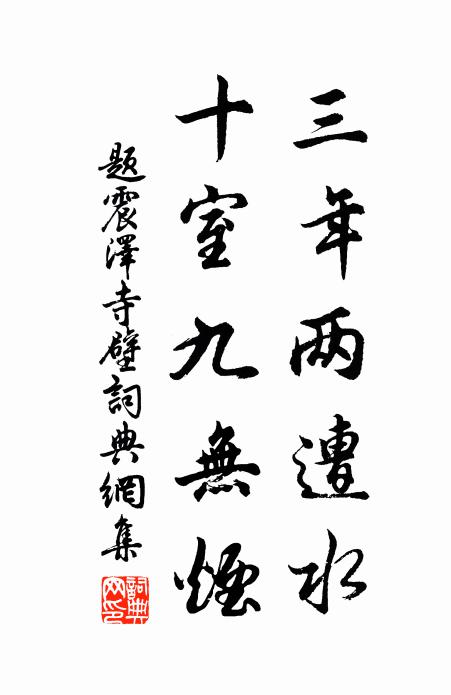 三年两遭水
十室九無煙
题震澤寺壁詞典網集
詞典网印